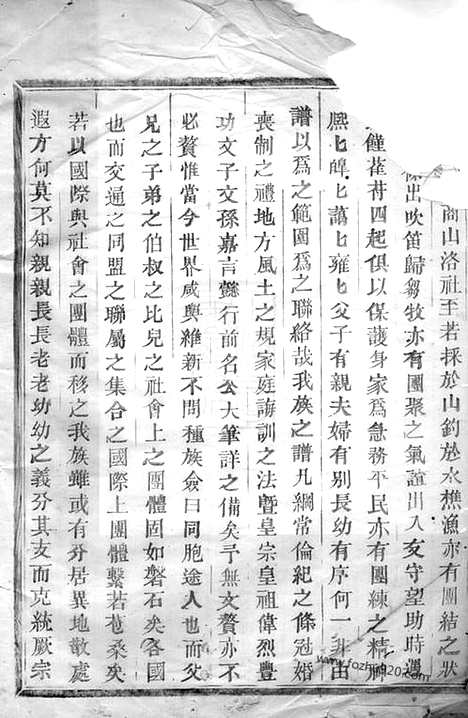 商山洛社至若採於山釣於水樵漁亦有團結之狀
出吹笛歸芻牧亦有團聚之氣誼出入友守望助時遇
饉萑苻四起俱以保護身家爲急務平民亦有團練之精神
熙匕皥匕藹匕雍匕父子有親夫婦有別長幼有序何一非由
譜以爲之範圍爲之聯絡哉我族之譜凡綱常倫紀之條冠婚
喪制之禮地方風土之規家庭誨訓之法曁皇宗皇祖偉烈豐
功文子文孫嘉言懿行前名公大筆詳之備矣予無文贅亦不
必贅惟當今世界咸與維新不問種族僉曰同胞途人也而父
兄之子弟之伯叔之比兒之社會上之團體固如磐石矣各國
也而交通之同盟之聯屬之集合之國際上團體繫若苞桑矣
若以國際與社會之團體而移之我族雖或有分居異地散處
遐方何莫不知親親長長老老幼幼之義分其支而克統厥宗
www.fozhu920.com